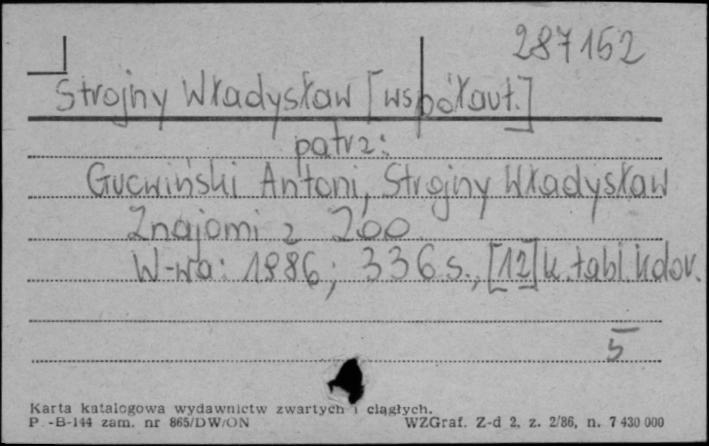 287152
Strojny Władysław [współaut.]
patrz:
Gucwiński Antoni, Strojny Władysław
Znajomi z ZOO
W-wa: 1986; 336 s., [12] k. tabl. kolor.
5
Karta katalogowa wydawnictw zwartych i ciągłych.
P.-B-144 zam. nr 865/DW/ON WZGraf. Z-d 2, z. 2/86, n. 7 430 000